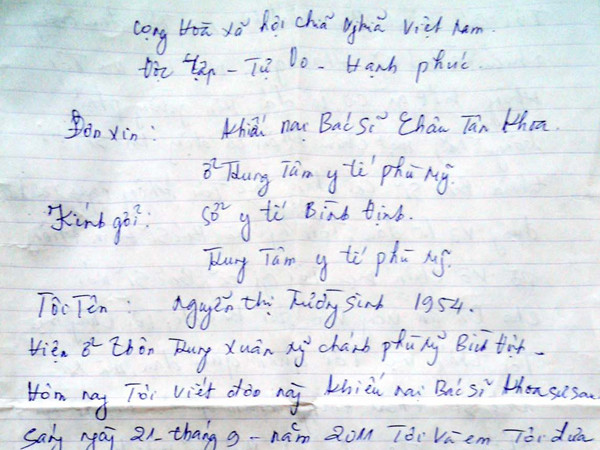 Cộng Hoà xã hội chủ Nghĩa Việt Nam.
Độc Lập - Tự Do - Hạnh phúc.
Đơn xin: khiếu nại Bác Sĩ Châu Tân Khoa.
ở Trung Tâm y tế phù Mỹ.
Kính gởi: Sở y tế Bình Định.
Trung Tâm y tế phù Mỹ.
Tôi Tên: Nguyễn thị Trường Sinh 1954.
Hiện ở thôn Trung Xuân Mỹ chánh phù Mỹ Bình Định.
Hôm nay Tôi viết đơn này khiếu nại Bác Sĩ Khoa sự sau
Sáng ngày 21 - tháng 9 - năm 2011 Tôi và em Tôi đưa